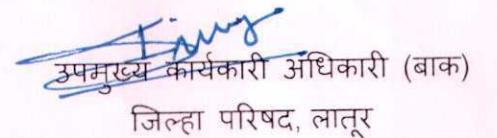 उपमुख्य कार्यकारी अधिकारी (बाक)
जिल्हा परिषद, लातूर